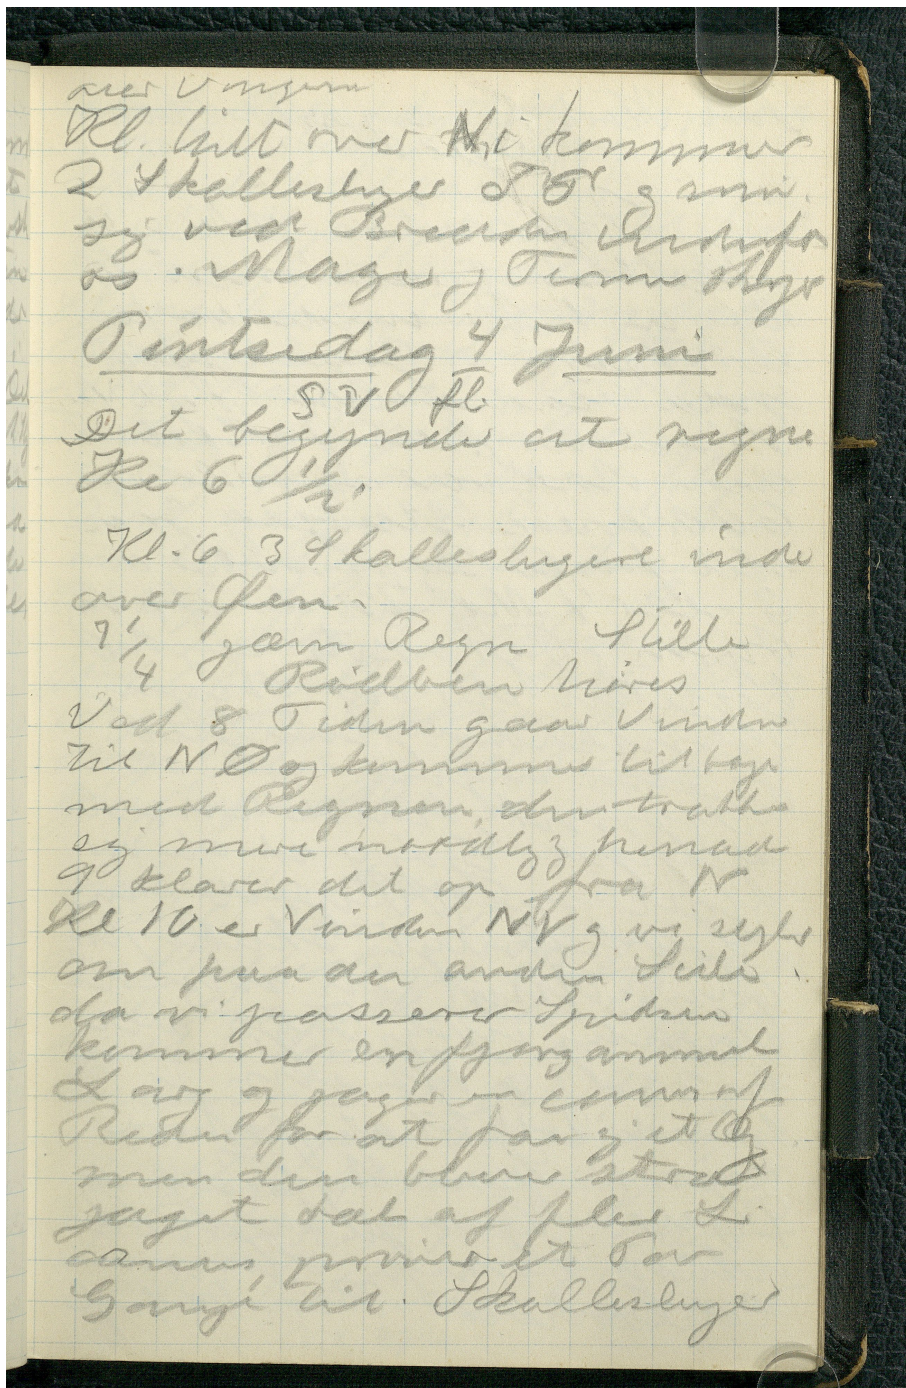 over Vingen
Kl. lidt over Ni kommer
2 Skallesluger og
sig ved Bredden indenfor
os. Maager og Terner skriger
Pintsedag 4 Juni
SV fl.
Det begynde at regne
Kl 6 1/2
Kl. 6 3 Skalleslugere inde
over Øen.
7 1/4 jævn Regn Stille
Rødben høres
Ved 8 Tiden gaar Vinden
til NØ og kommer tilbage
med Regnen, den trækker
sig mere nordlig henad
9 klarer det op fra N
Kl 10 er Vinden NV og vi sejler
om paa den anden Side
da vi passerer Spidsen
kommer en fjorgammel
Larg og jager en canus af
Reden for at faa sig et Æg
men den bliver strax
jaget væk af flere L.
canus, prøver et Par
Gange til. Skallesluger